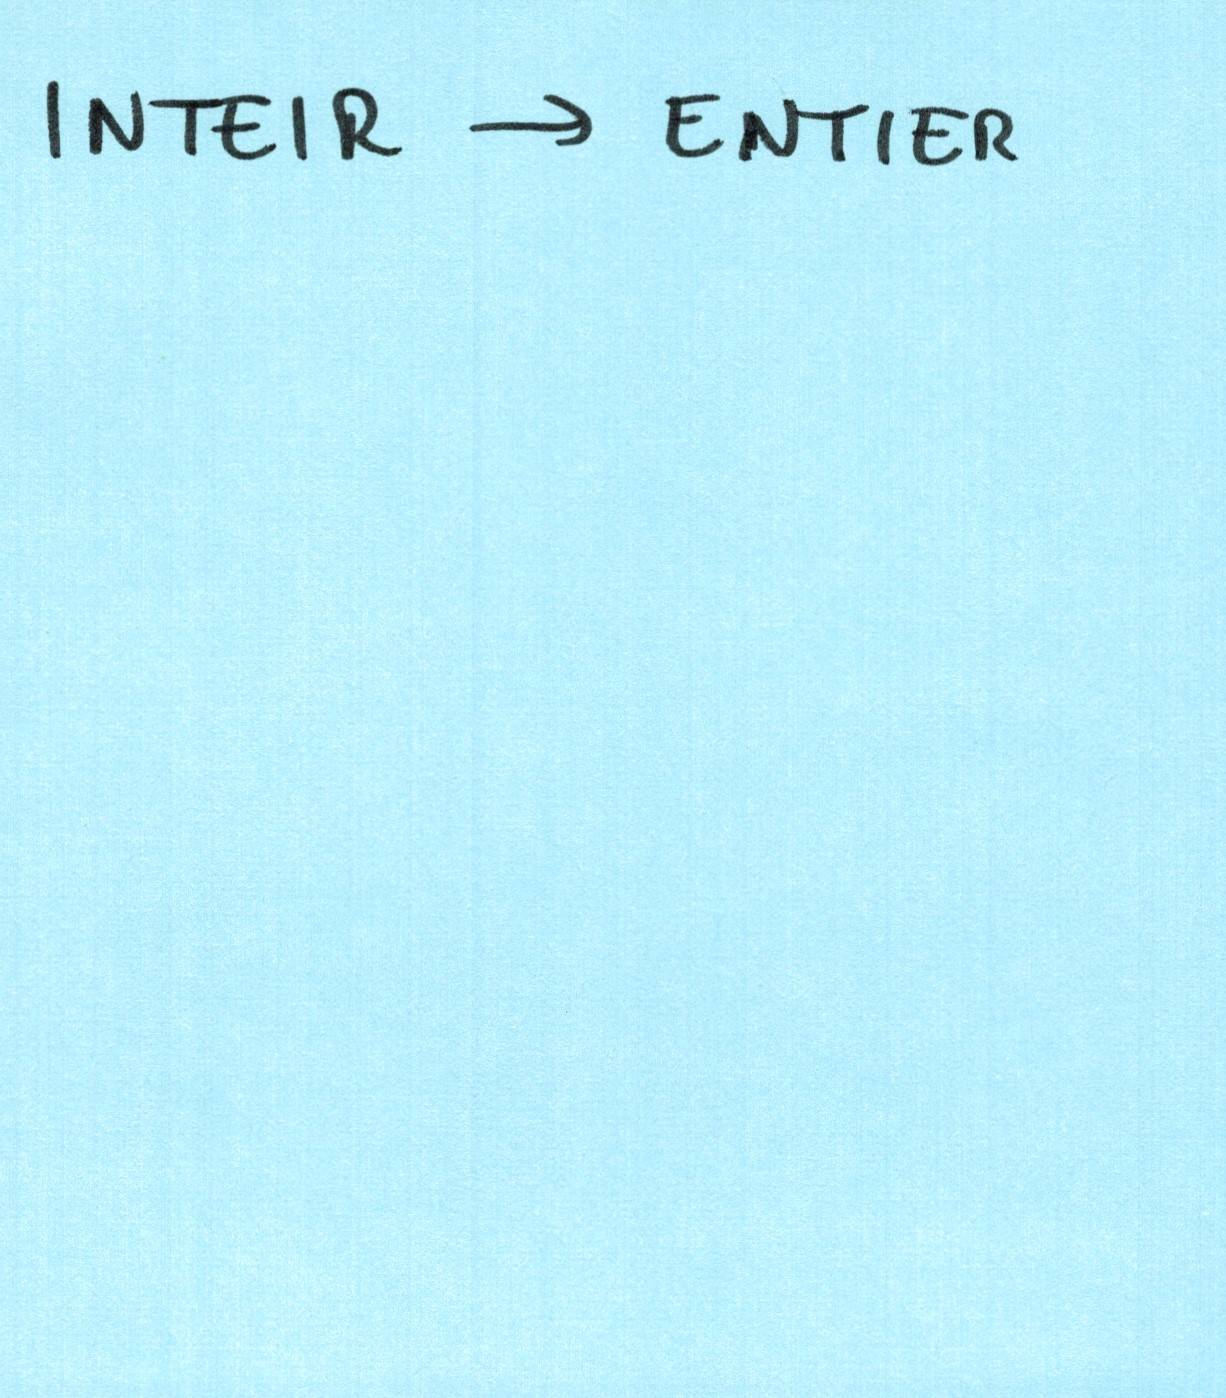 INTEIR → ENTIER